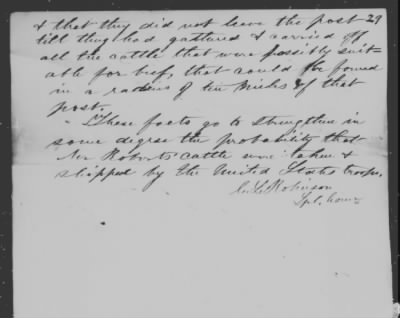 & that they did not leave the post 29
till they had gathered & carried off
all the cattle that were possibly suit-
able for beef, that could be found
in a radius of ten miles of that
post.
" These facts go to strengthen in
some degree the probability that
Roberts cattle were taken &
shipped by the United States troops.
Robinson
Spl. Com